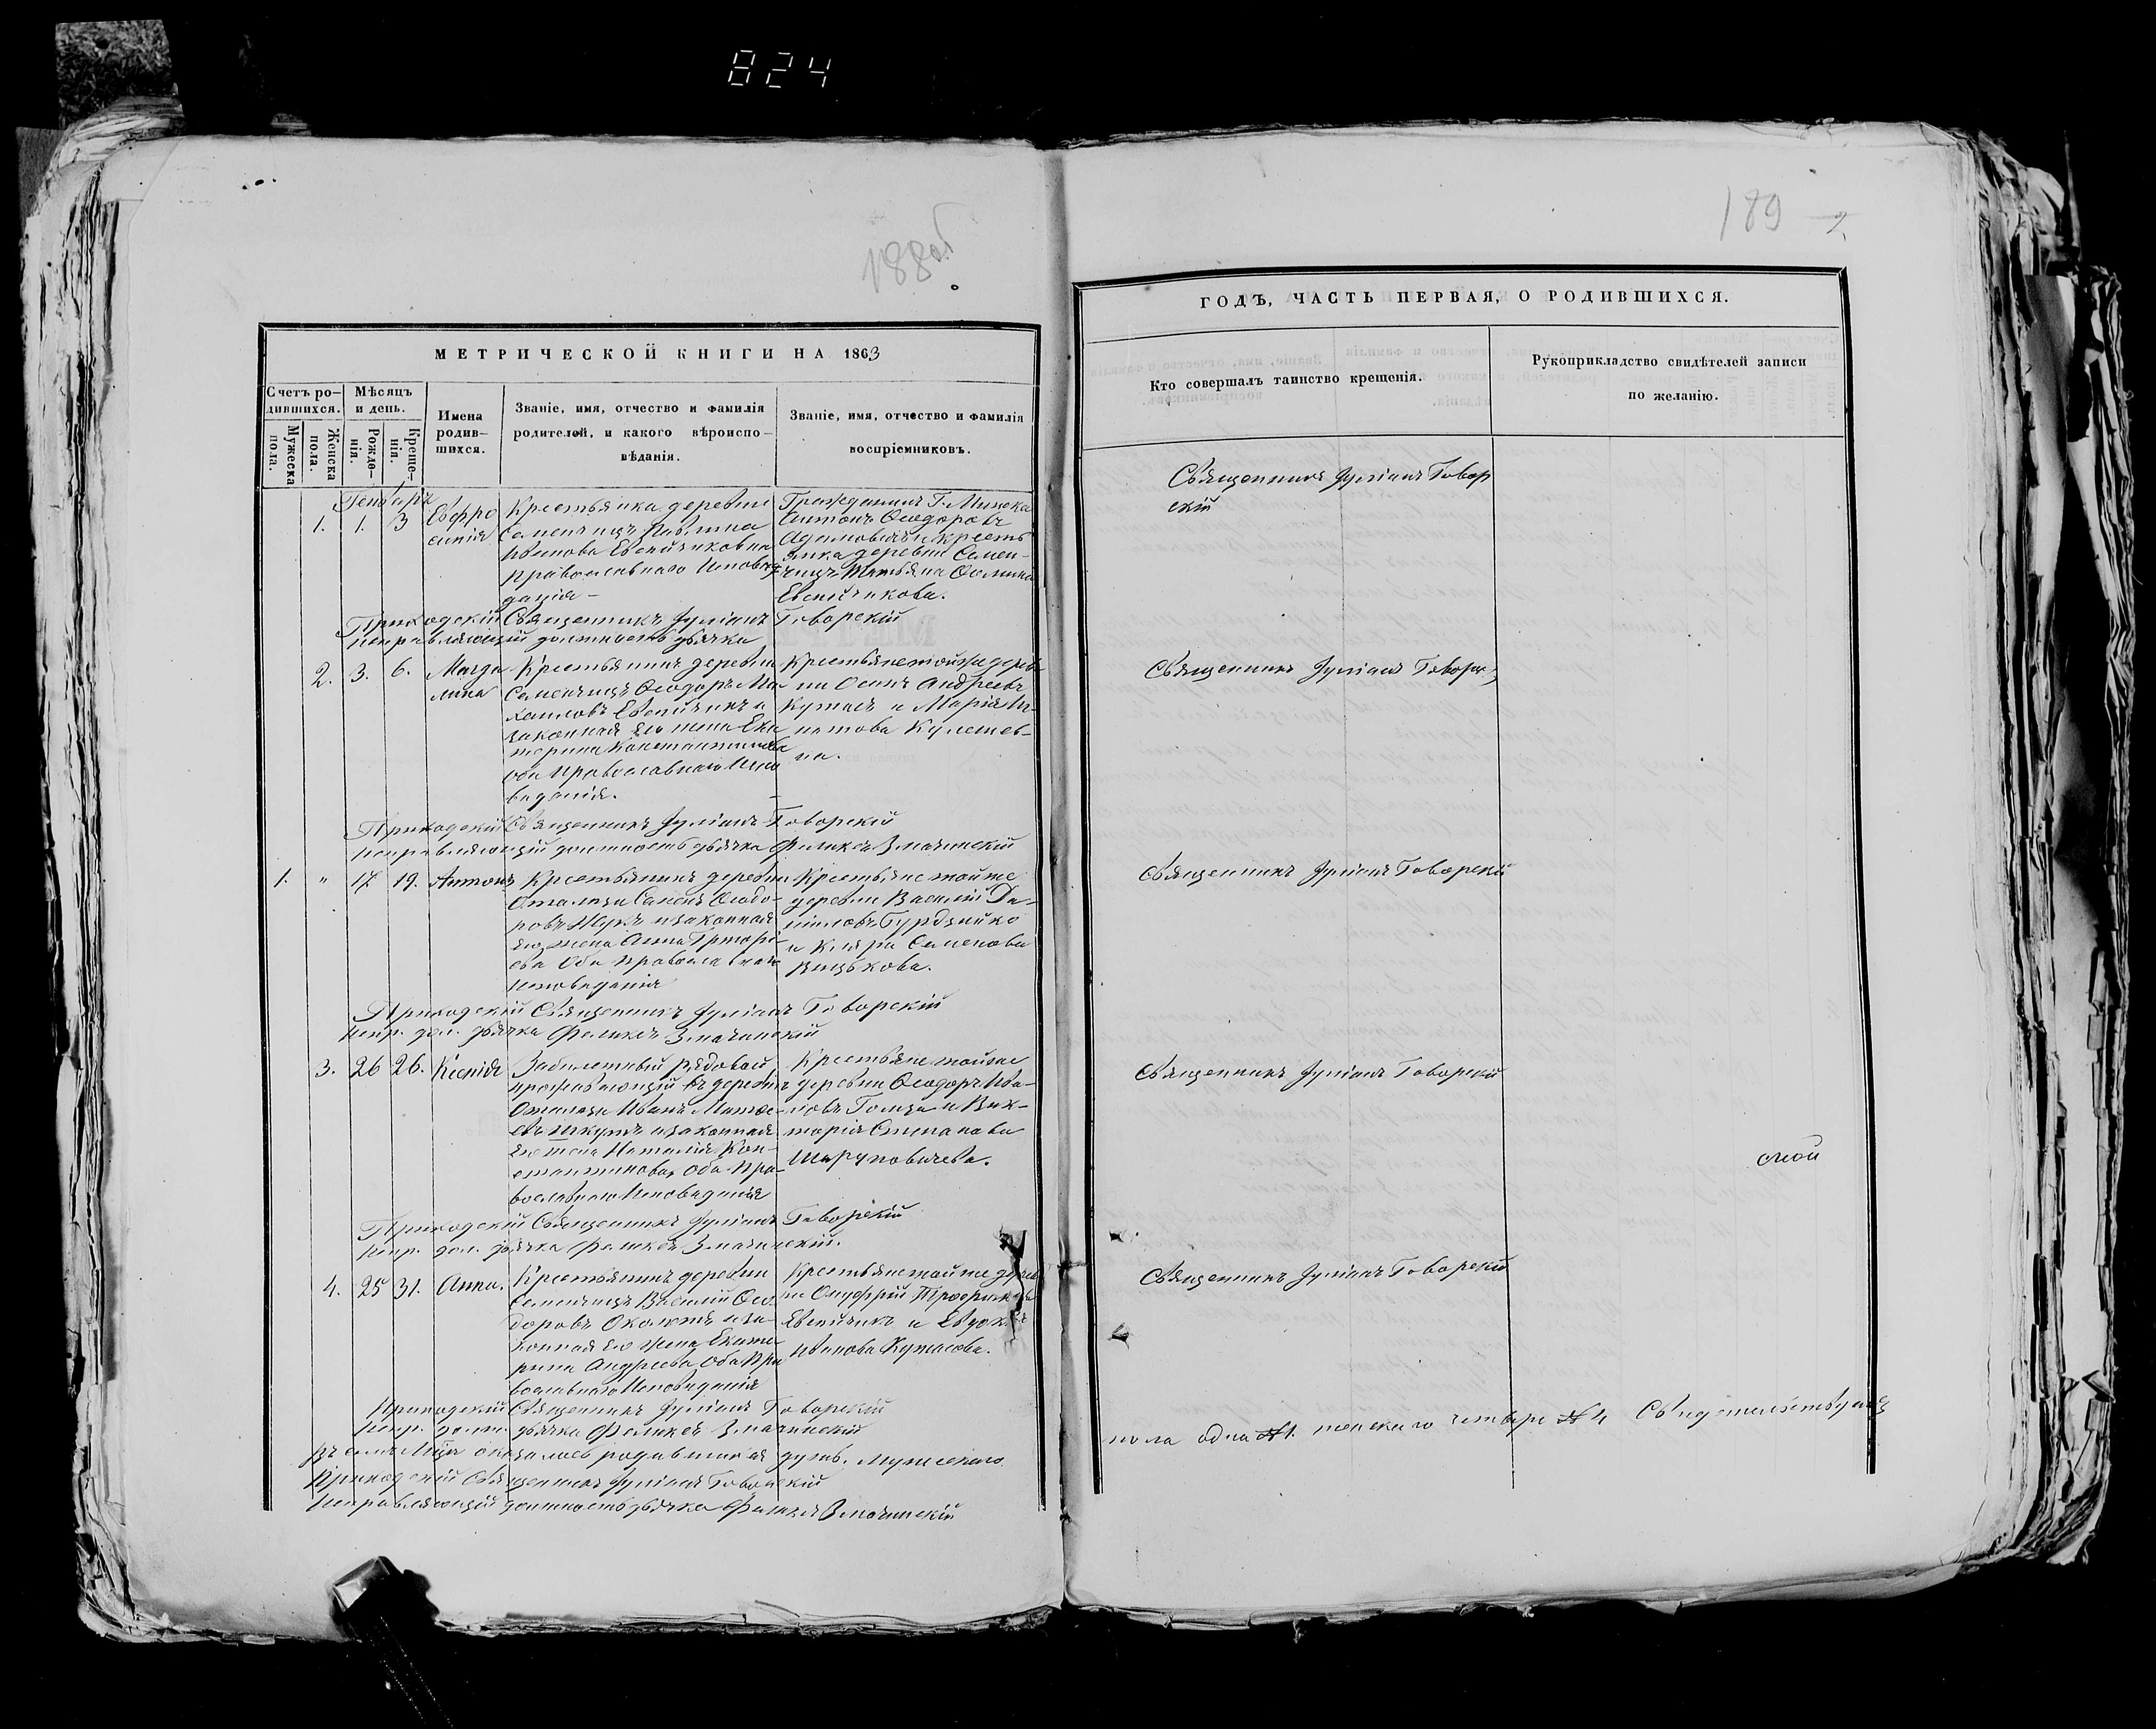 824
188об
МЕТРИЧЕСКОЙ КНИГИ НА 1863
Счетъ ро-
дившихся.
Мужеска
пола.
Женска
пола.
Мѣсяцъ
и день.
Рожде-
нія.
Креще-
нія.
Имена
родив-
шихся.
Званіе, имя, отчество и фамилія
родителей, и какого вѣроиспо-
вѣданія.
Званіе, имя, отчество и фамилія
воспріемниковъ.
Генварь
1. 1. 3
Евфро
синія
Крестьянка деревни
Семенчицъ
Иванова Евсейчикова
православнаго Исповѣ
данія -
Гражданинъ Г. Минска
Антонъ Ѳеодоровъ
Адамовичъ и крестья
янка деревни Семен-
чицъ Татьяна
Евсейчикова.
Приходскій Священникъ Іуліанъ Говорскій
исправляющій должность дьячка
2. 3. 6.
Магда
лина
Крестьянинъ деревни
Семенчицъ Ѳеодоръ Ми-
хаиловъ Евсейчикъ и
законная его жена Ека
терина Константинова
оба православнаго Испо
веданія.
Крестьяне тойже дерев
ни Осипъ Андреевъ
и Марія Иг-
натова
на.
Приходскій Священникъ Іуліанъ Говорскій
исправляющій должность дьячка Феликсъ Змачинскій
1. " 17 19. Антонъ
Крестьянинъ деревни
Семенъ Ѳеодо-
ровъ и законная
его жена Анна Григорі-
ева Оба православнаго
исповеданія
Крестьяне тойже
деревни Василій Да-
ниловъ Гурдзейко
и Клара Семенова
Вицькова.
Приходскій Священникъ Іуліанъ Говорскій
испр. дол. дьячка Феликсъ Змачинскій
3. 26 26. Ксенія
Забилетный рядовый
проживающій въ деревнѣ
Иванъ Матве-
евъ Шкутъ и законная
его жена Наталія Кон-
стантинова, Оба пра-
вославнаго Исповеданія
Крестьяне тойже
деревни Ѳеодоръ Ива-
новъ Гомза и Вик-
торія Степанова
Шаруповичева.
Приходскій Священникъ Іуліанъ Говорскій
испр. дол. дьячка Феликсъ Змачинскій.
4. 25 31. Анна.
Крестьянинъ деревни
Семенчицъ Василій Ѳео
доровъ и за-
конная его жена Екате
рина Андреева Оба пра
вославнаго Исповеданія
Крестьяне тойже дерев
ни Онуфрій
Евсейчикъ и Евдокія
Иванова
Приходскій Священникъ Іуліанъ Говорскій
испр. долж. дьячка Феликсъ Змачинскій
Въ семъ Мцѣ оказалось родившихся душъ. Мужескаго
Приходскій Священникъ Іуліанъ Говорскій
Исправляющій должность дьячка Феликсъ Змачинскій
189
2
ГОДЪ, ЧАСТЬ ПЕРВАЯ, О РОДИВШИХСЯ.
Кто совершалъ таинство крещенія.
Рукоприкладство свидѣтелей записи
по желанію.
Священникъ Іуліанъ Говор
скій
Священникъ Іуліанъ Говорс
Священникъ Іуліанъ Говорскій
Священникъ Іуліанъ Говорскій
Священникъ Іуліанъ Говорскій
пола одна № 1. женскаго четыре № 4 Свидетельствуемъ